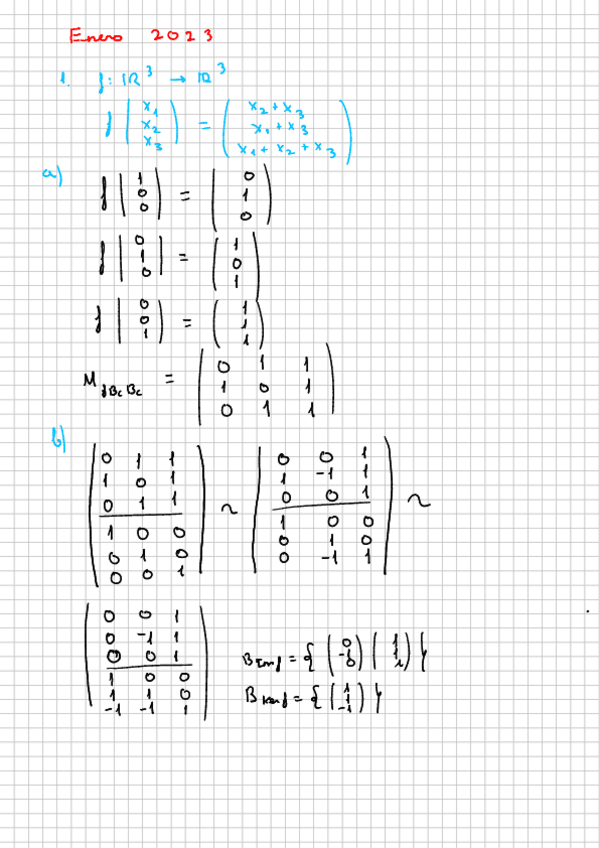 Enero 2023
1. f: ℝ³ → ℝ³
f ( x₁ x₂ x₃ ) = ( x₂ + x₃ x₁ + x₃ x₁ + x₂ + x₃ )
a)
f ( 1 0 0 ) = ( 0 1 0 )
f ( 0 1 0 ) = ( 1 0 1 )
f ( 0 0 1 ) = ( 1 1 1 )
M f Bc Bc = ( 0 1 1
1 0 1
0 1 1 )
b)
0 1 1 0 0 1
1 0 1 1 -1 1
0 1 1 ~ 0 0 1 ~
1 0 0 1 0 0
0 1 0 0 1 0
0 0 1 0 -1 1
0 0 1
0 -1 1
0 0 1
1 0 0
1 1 0
-1 -1 1
B Imf = { ( 0 -1 0 ) ( 1 1 1 ) }
B kerf = { ( 1 1 -1 ) }